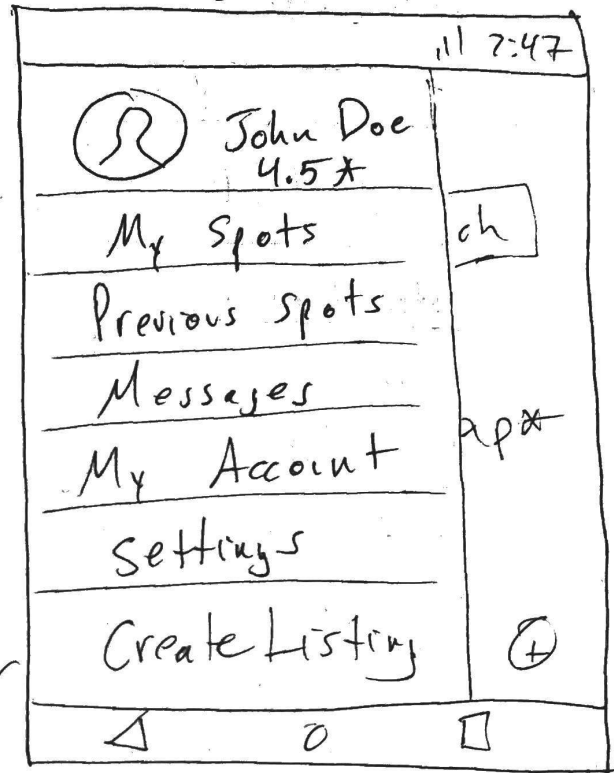 7:47
John Doe
4.5*
My Spots
ch
Previous Spots
Messages
ap*
My Account
Settings
Create Listing